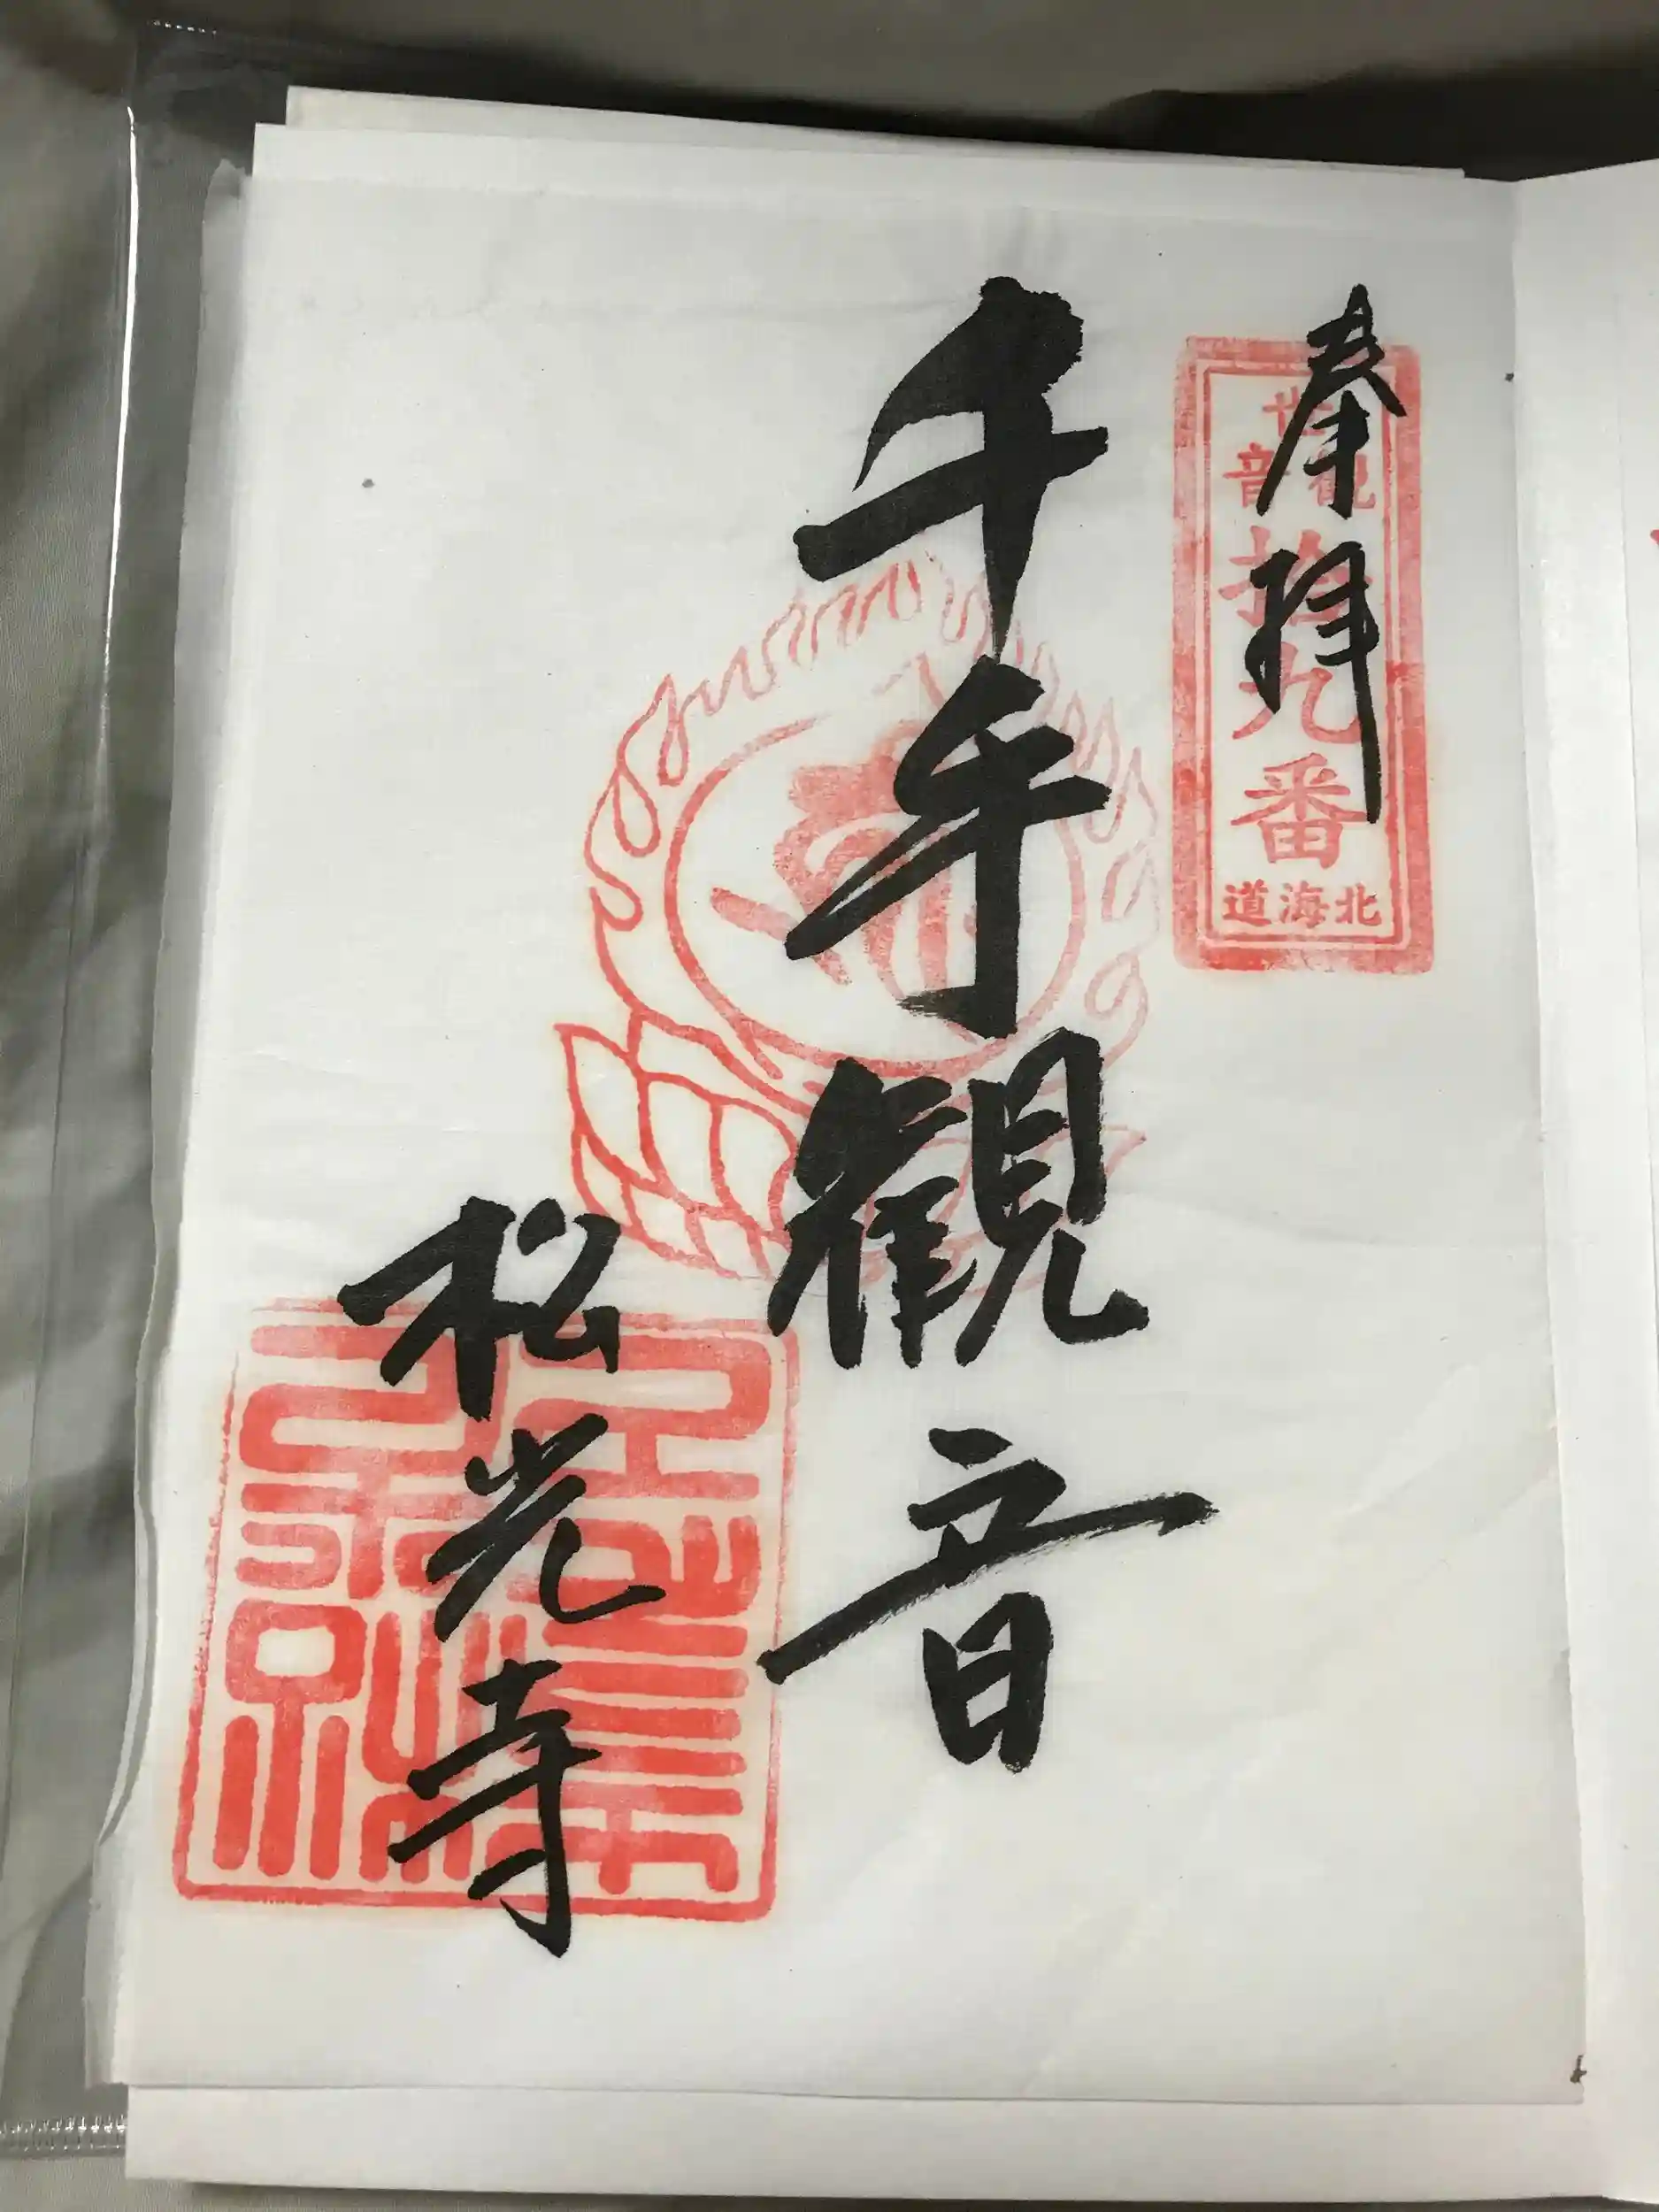 奉拝
世観音
拾九番
北海道
千手観音
松光寺